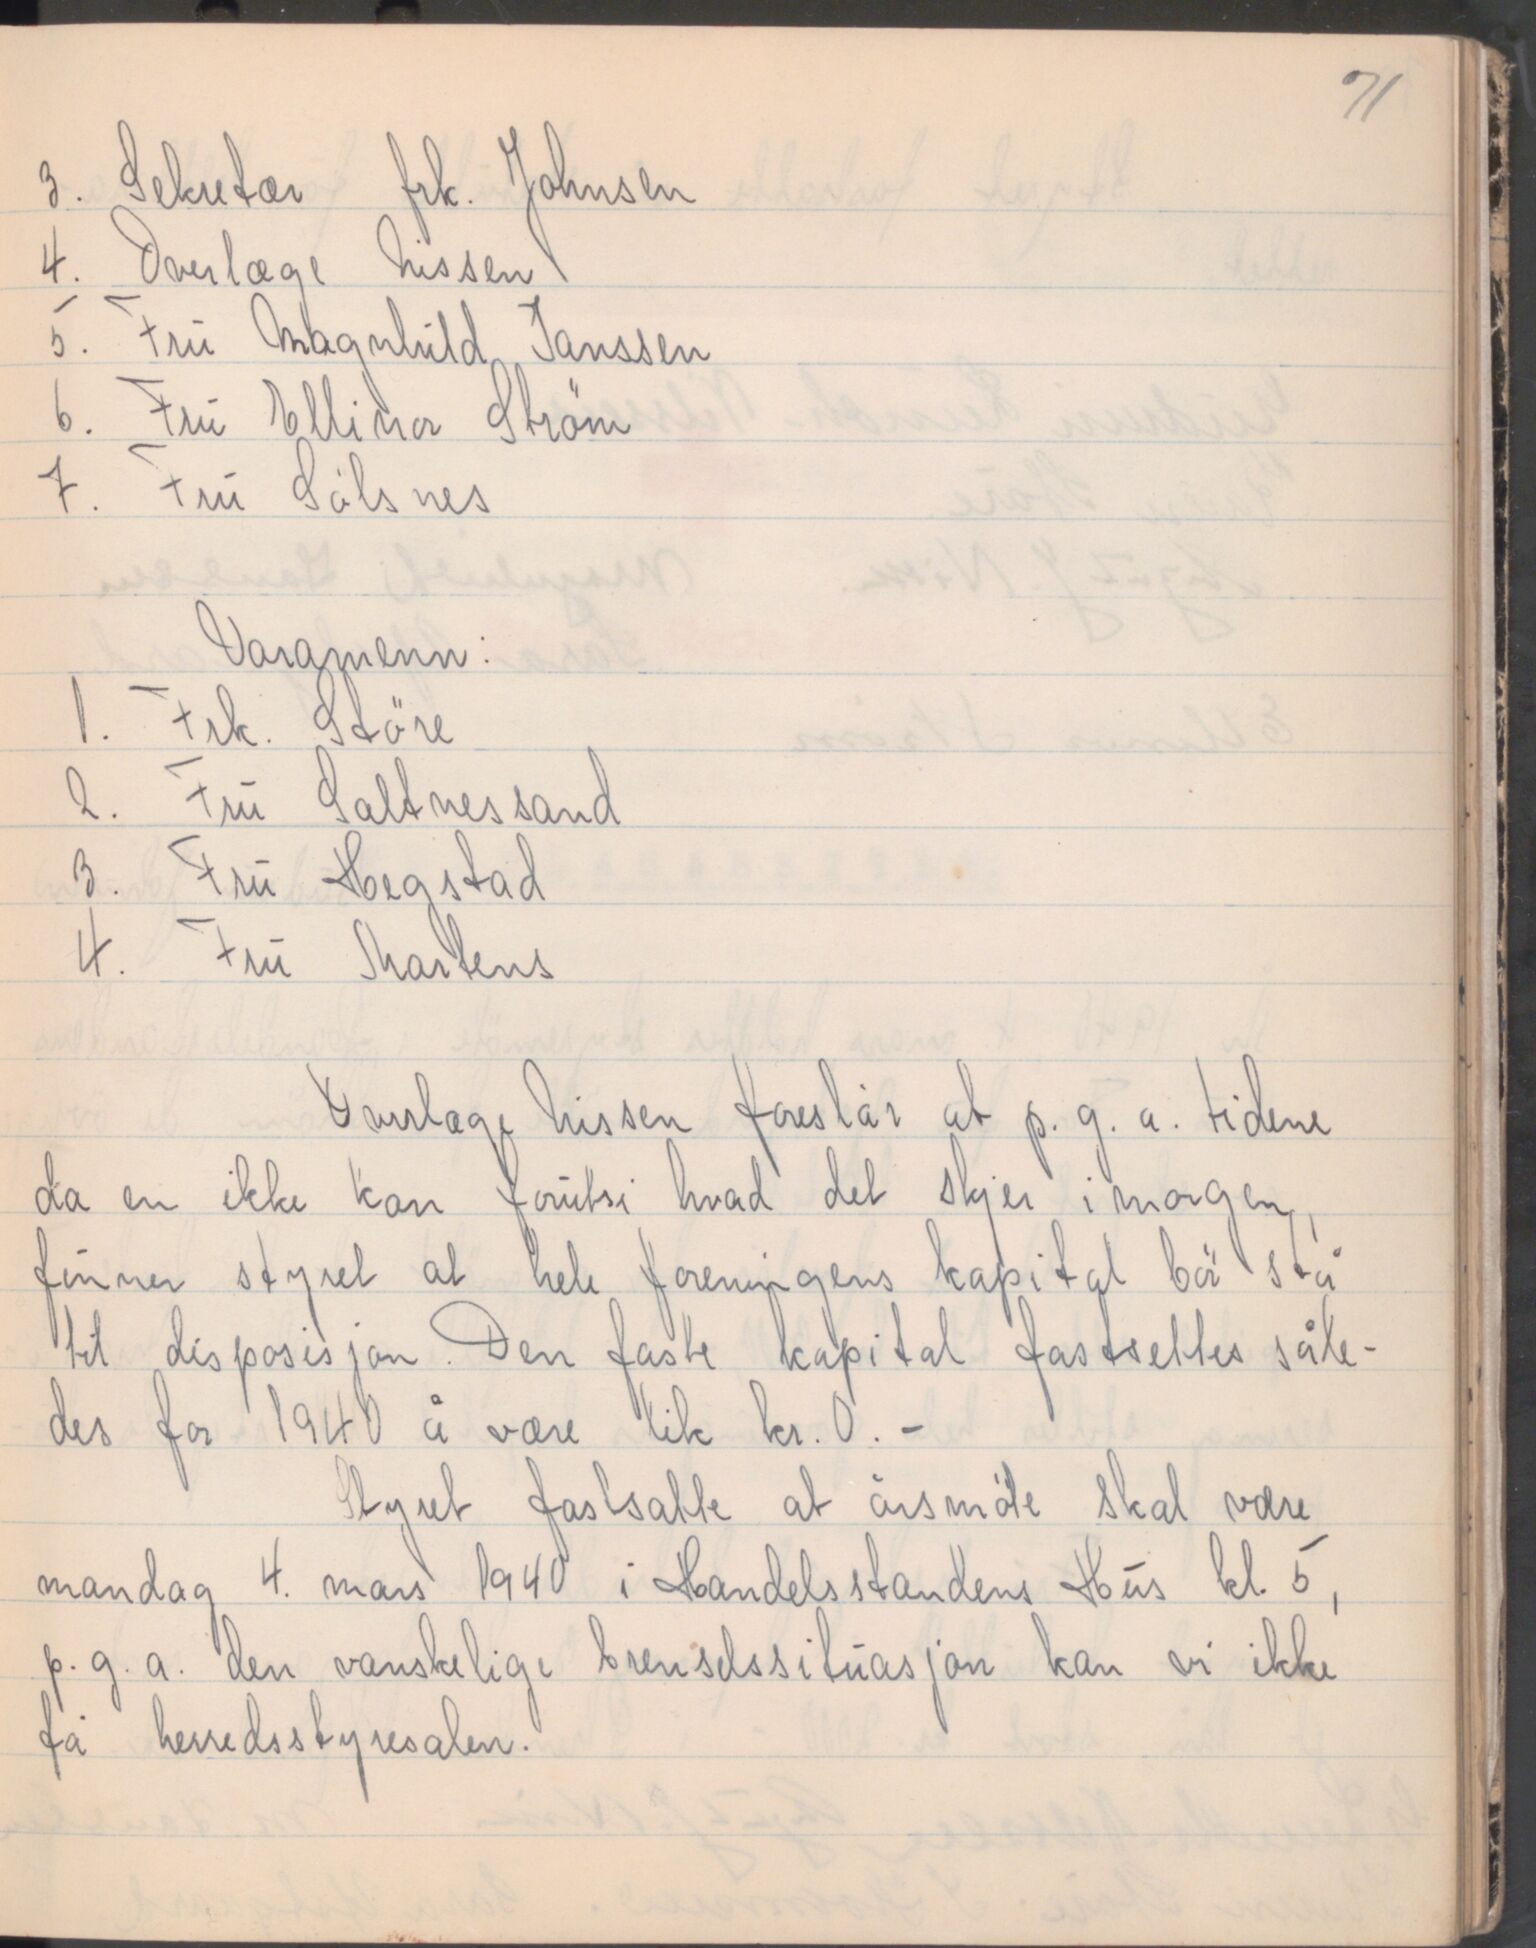 71
3. Sekretær frk. Johnsen
4. Overlæge Nissen
5. Fru Magnhild Janssen
6. Fru Ellinor Ström
7. Fru Sölsnes
Varamenn:
1. Frk. Störe
2. Fru Saltnessand
3. Fru Hegstad
4. Fru Martens
Overlæge Nissen foreslår at p.g.a. tidene
da en ikke kan forutsi hvad det skjer imorgen,
finner styret at hele foreningens kapital bör stå
til disposisjon. Den faste kapital fastsettes såle-
des for 1940 å være lik kr. 0.-
Styret fastsatte at årsmöte skal være
mandag 4. mars 1940 i Handelsstandens Hus kl. 5,
p.g.a. den vanskelige brenselssituasjon kan vi ikke
få herredsstyresalen.